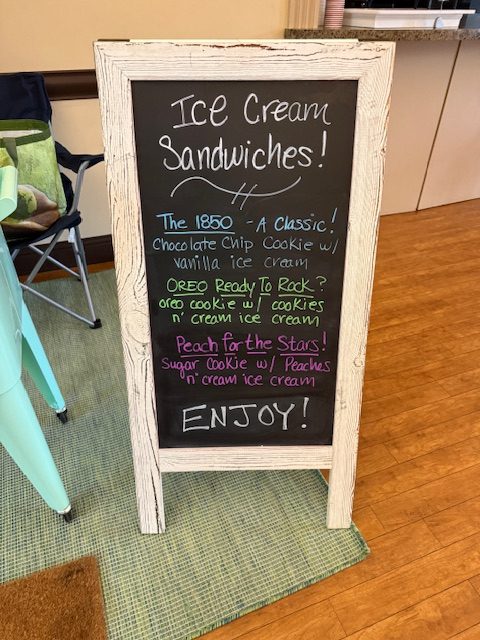 Ice Cream
Sandwiches!
The 1850 - A Classic!
Chocolate Chip Cookie w/
vanilla ice cream
OREO Ready To Rock?
oreo cookie w/ cookies
n' cream ice cream
Peach for the Stars!
Sugar Cookie w/ Peaches
n' cream ice cream
ENJOY!